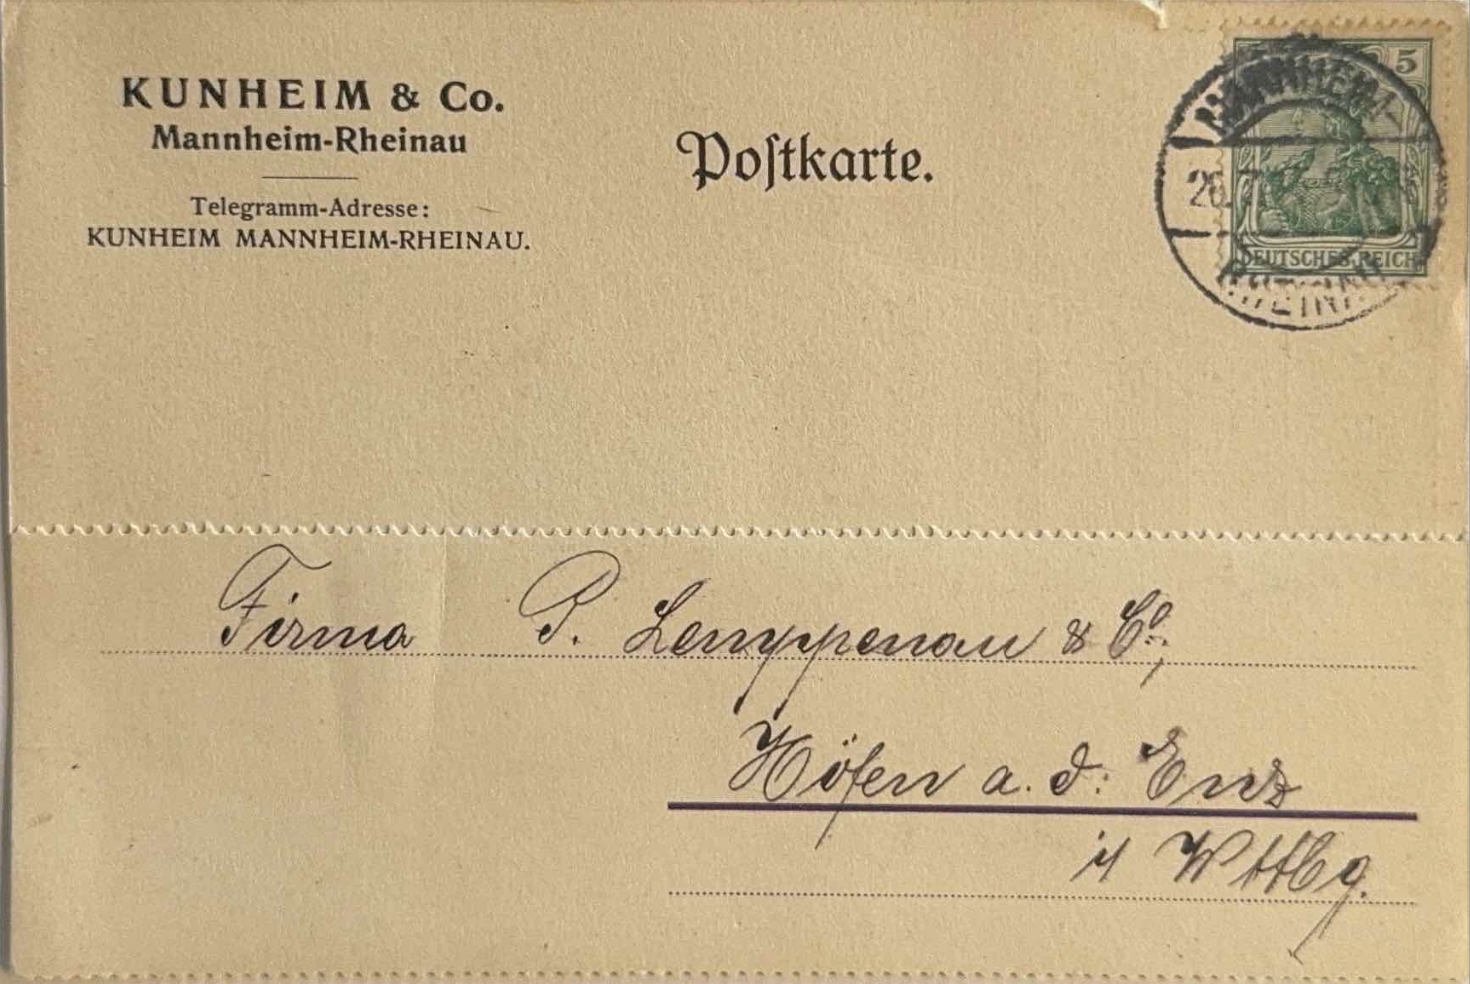 KUNHEIM & Co.
Mannheim-Rheinau
Telegramm-Adresse:
KUNHEIM MANNHEIM-RHEINAU.
Poſtkarte.
5
DEUTSCHES REICH
MANNHEIM-
26.7
RHEINAU
Firma P. Lemppenau & Co.,
Höfen a. d. Enz
i/ Wttbg.